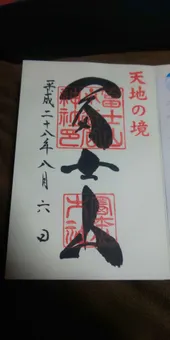 天地の境
富士山
平成二十八年八月六日